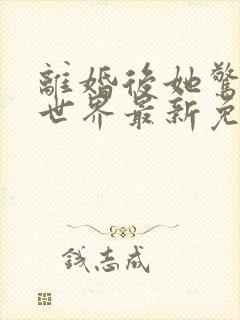 離婚後她驚
世界最新免
钱志成